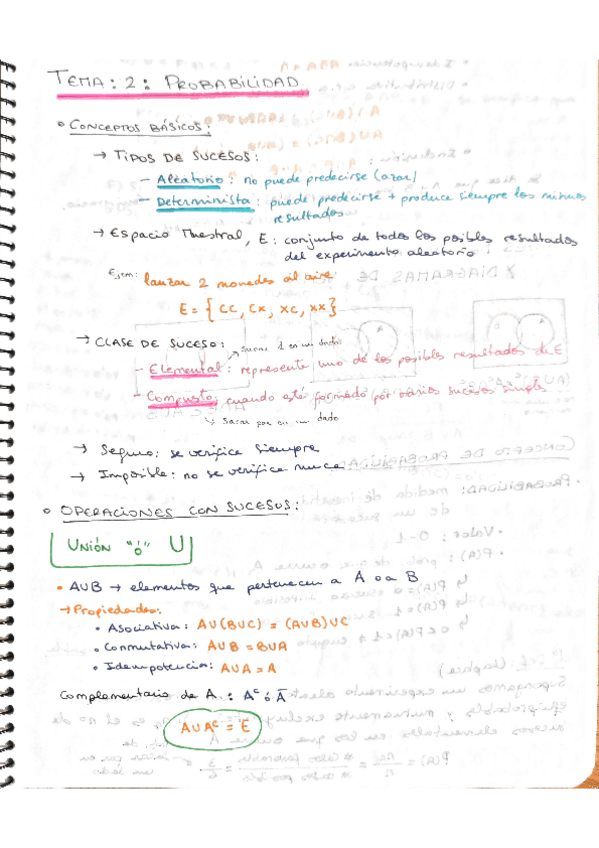 TEMA: 2: PROBABILIDAD
• CONCEPTOS BÁSICOS:
→ TIPOS DE SUCESOS:
– Aleatorio: no puede predecirse (azar)
– Determinista: puede predecirse + produce siempre los mismos
resultados
→ Espacio Muestral, E: conjunto de todos los posibles resultados
del experimento aleatorio
Ejem: lanzar 2 monedas al aire
E = { CC, CX, XC, XX }
→ CLASE DE SUCESO:
Sacar 1 en un dado
– Elemental: representa uno de los posibles resultados de E
– Compuesto: cuando está formado por varios sucesos simples
↳ Sacar par en un dado
→ Seguro: se verifica siempre
→ Imposible: no se verifica nunca
• OPERACIONES CON SUCESOS:
UNIÓN "ó" U
• AUB → elementos que pertenecen a A o a B
→ Propiedades:
• Asociativa: AU(BUC) = (AUB)UC
• Conmutativa: AUB = BUA
• Idempotencia: AUA = A
Complementario de A: Aᶜ ó Ā
AUAᶜ = E